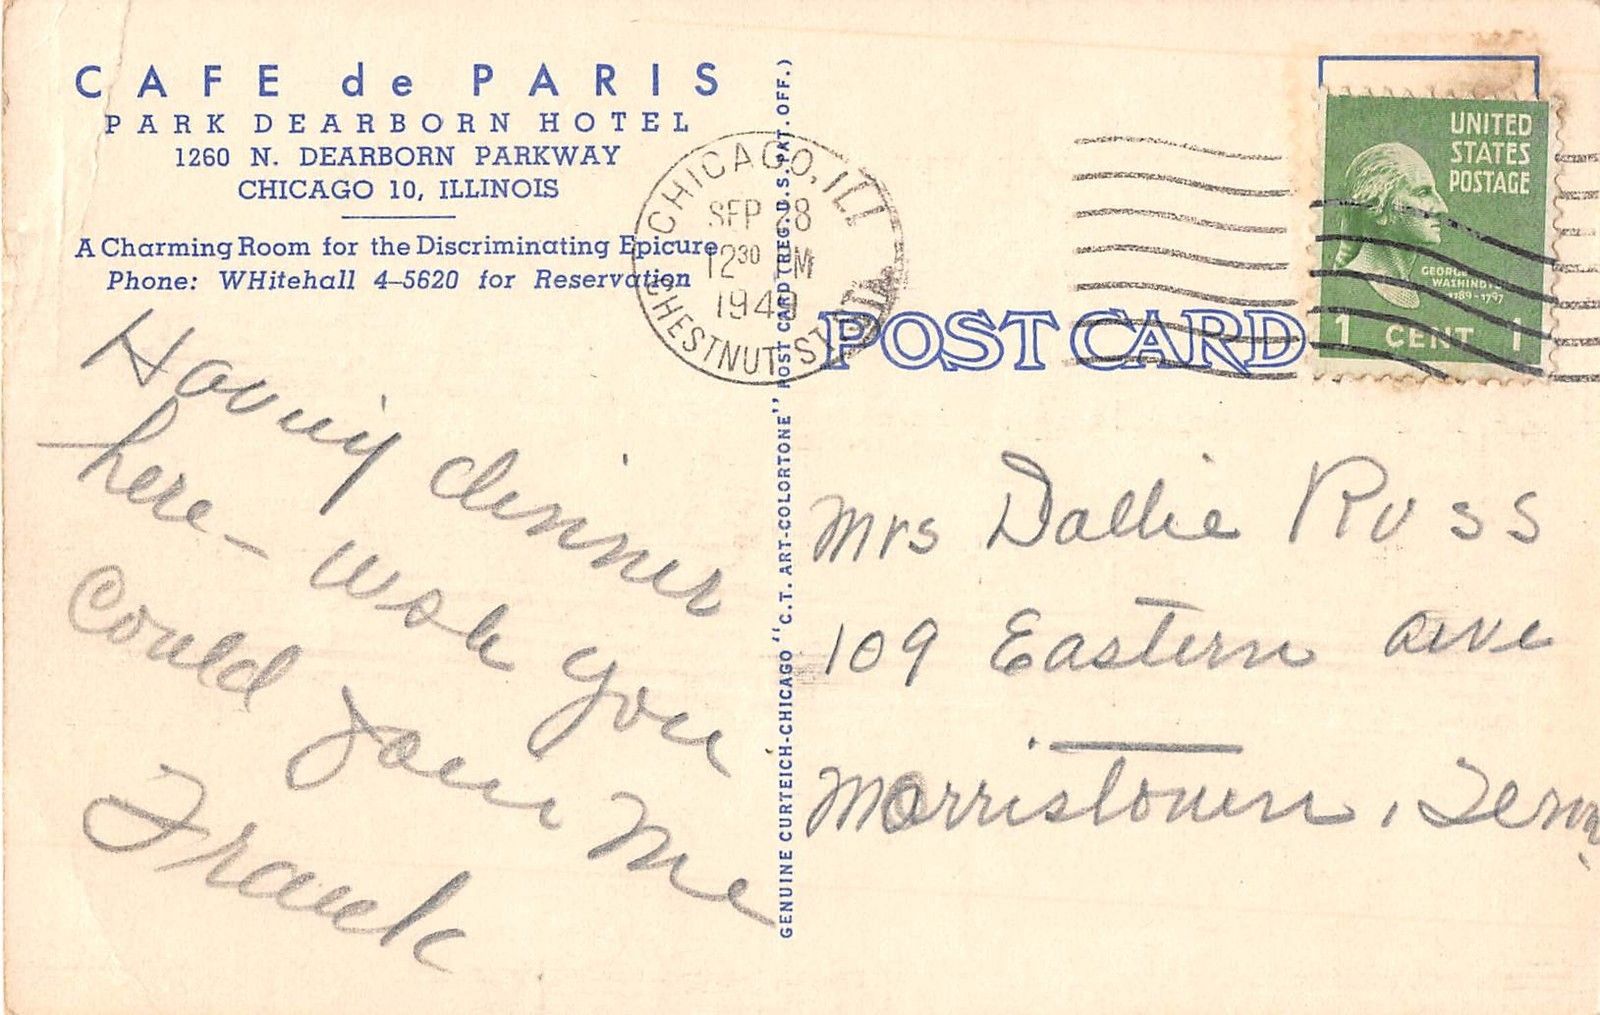 CAFE de PARIS
PARK DEARBORN HOTEL
1260 N. DEARBORN PARKWAY
CHICAGO 10, ILLINOIS
A Charming Room for the Discriminating Epicure
Phone: WHitehall 4-5620 for Reservation
Having dinner
here – wish you
could join me
Frank
GENUINE CURTEICH-CHICAGO "C.T. ART-COLORTONE" POST CARD (REG. U.S. PAT. OFF.)
CHICAGO, ILL
SEP 28
12 30 PM
1949
CHESTNUT ST.
POST CARD
UNITED
STATES
POSTAGE
GEORGE
WASHINGTON
1789-1797
1 CENT 1
Mrs Dallie Russ
109 Eastern ave
Morristown, Tenn